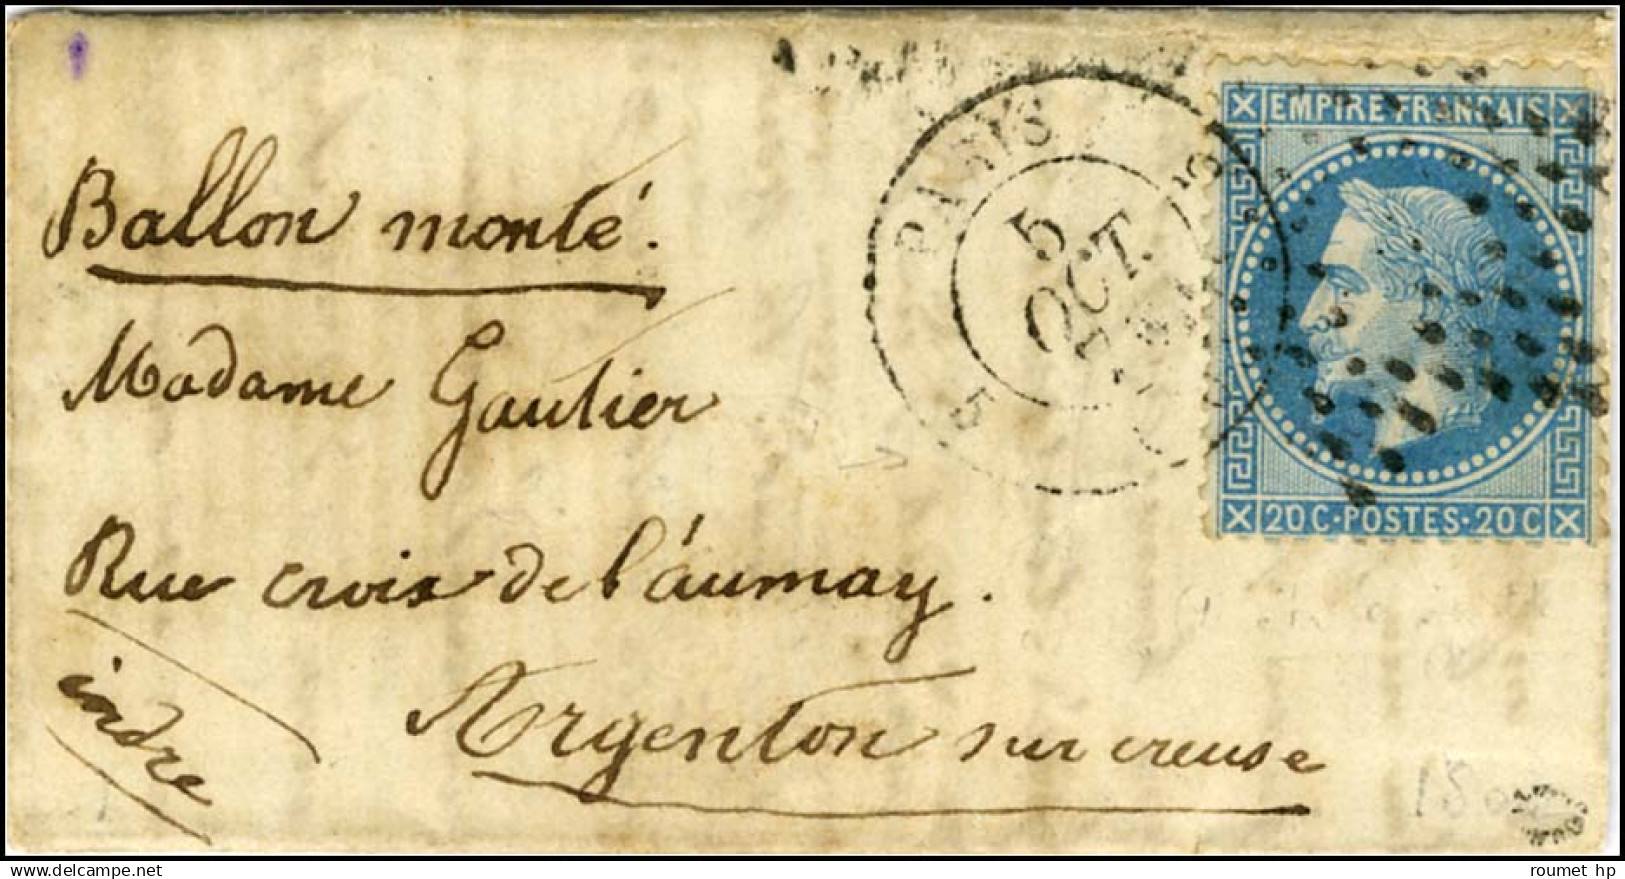 Ballon monté.
Madame Gautier
Rue croix de l'aumay.
indre
Argenton sur creuse
PARIS
5
OCT.
EMPIRE FRANCAIS
20 C·POSTES·20 C
roumet hp